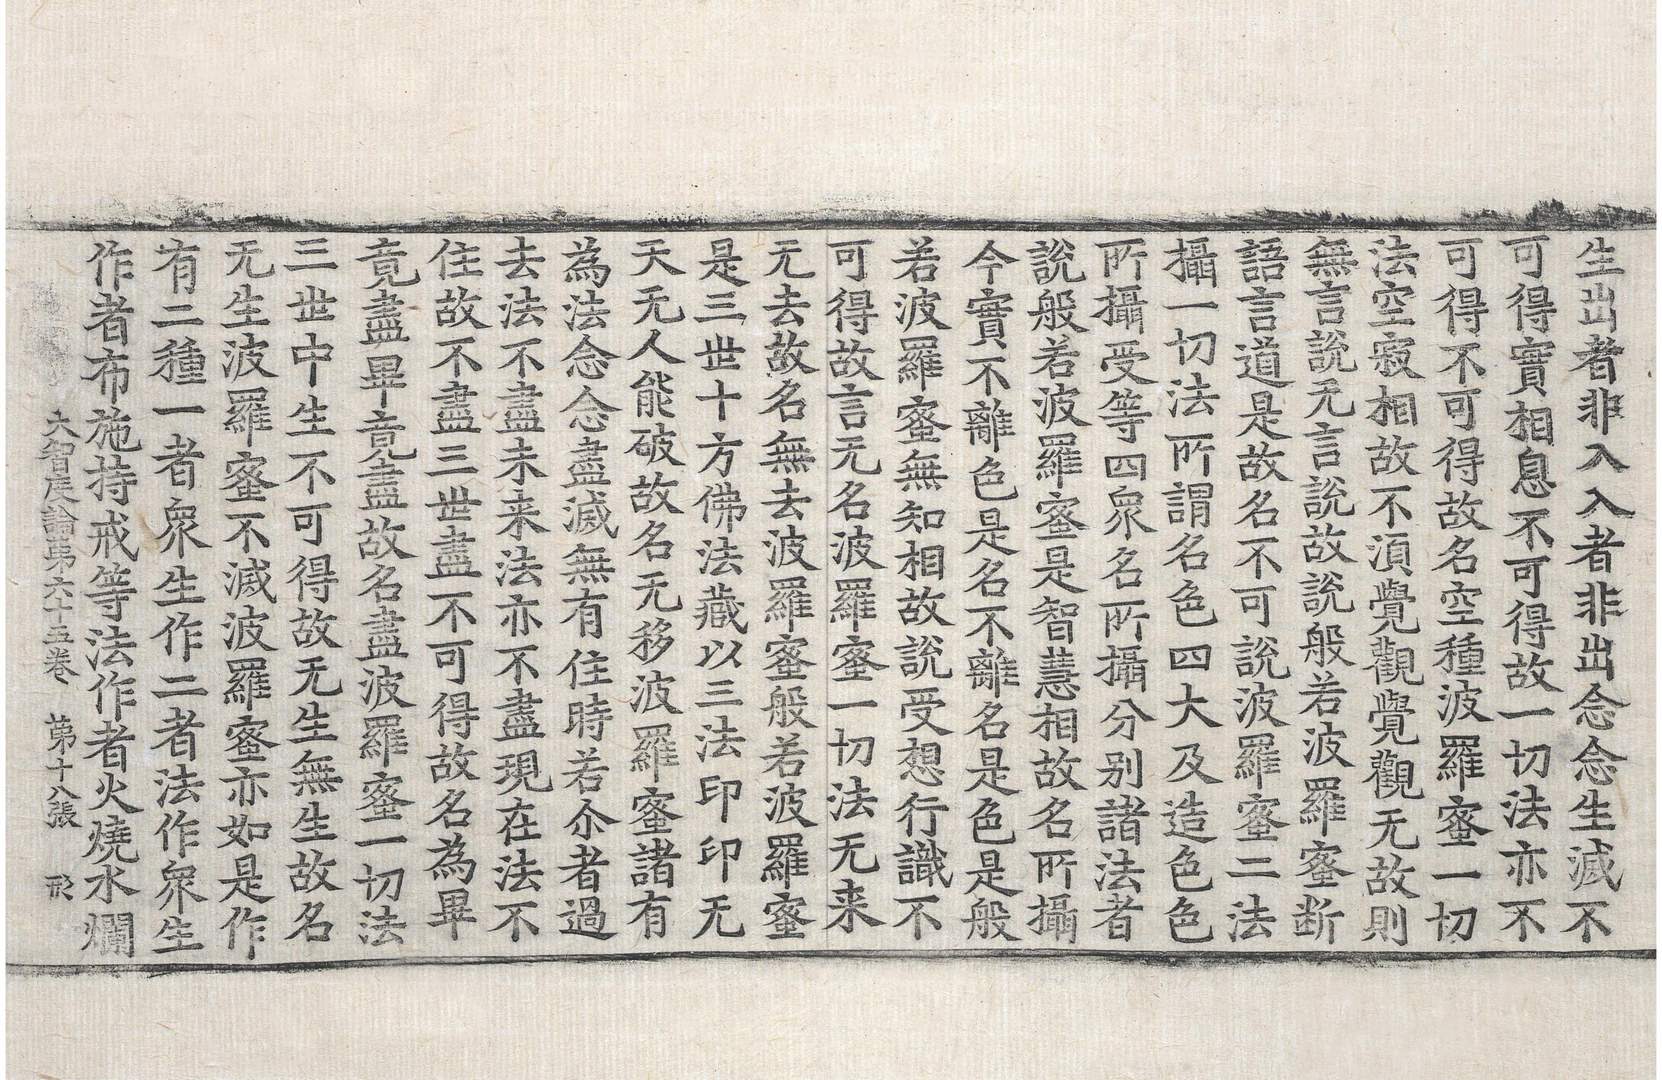 生出者非入入者非出念念生滅不
可得實相息不可得故一切法亦不
可得不可得故名空種波羅蜜一切
法空寂相故不湏覺觀覺觀无故則
無言說无言說故說般若波羅蜜断
語言道是故名不可說波羅蜜二法
攝一切法所謂名色四大及造色色
所攝受等四衆名所攝分別諸法者
說般若波羅蜜是智慧相故名所攝
今實不離色是名不離名是色是般
若波羅蜜無知相故說受想行識不
可得故言无名波羅蜜一切法无来
无去故名無去波羅蜜般若波羅蜜
是三世十方佛法藏以三法印印无
天无人能破故名无移波羅蜜諸有
為法念念盡滅無有住時若尒者過
去法不盡未来法亦不盡現在法不
住故不盡三世盡不可得故名為畢
竟盡畢竟盡故名盡波羅蜜一切法
三世中生不可得故无生無生故名
无生波羅蜜不滅波羅蜜亦如是作
有二種一者衆生作二者法作衆生
作者布施持戒等法作者火燒水爛
大智度論第六十五卷 第十八張 形